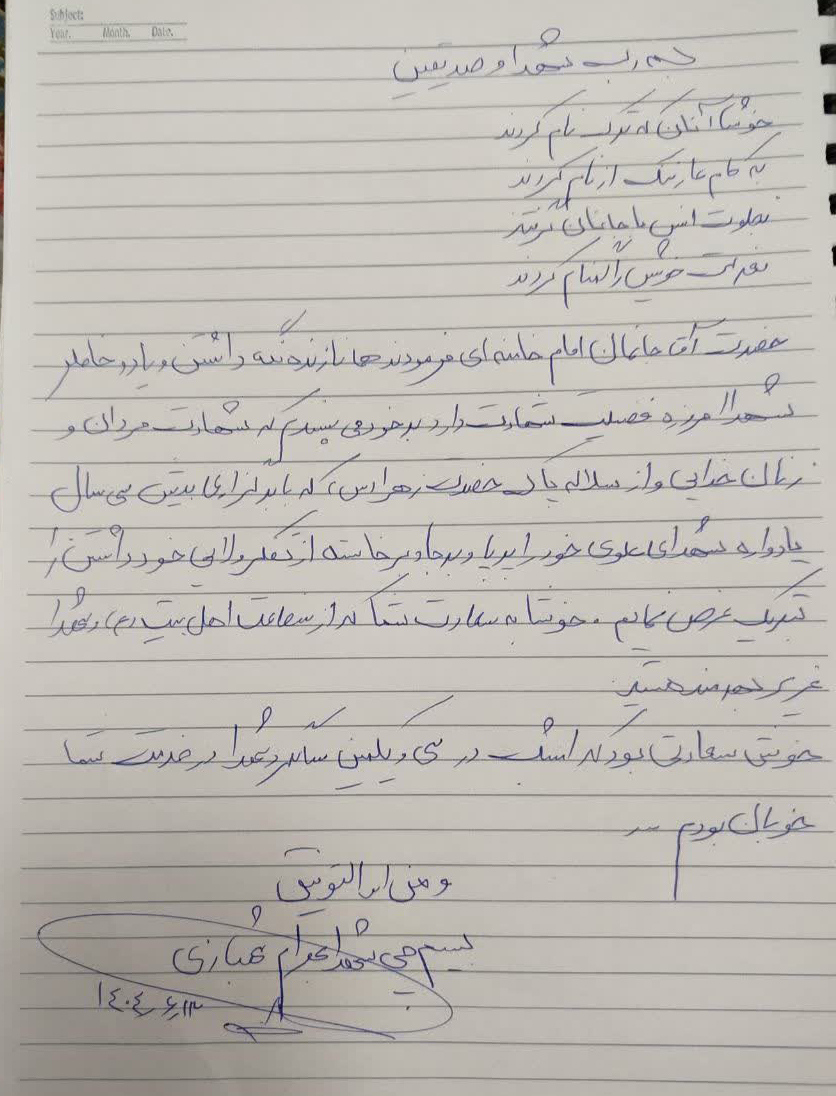 Subject:
Year. Month. Date.
بسم رب شهدا و صدیقین
خوشا آنان که ترک نام کردند
به کام عار ننگ از نام کردند
بخلوت انس با جانان گرفتند
خویش را کردند
حضرت آقا جانمان امام خامنه ای فرمودند همانا زنده نگه داشتن و یاد و خاطر
شهدا امروزه فضیلت شهادت دارد بر خود می بینم که شهادت مردان و
زنان خدایی و از سلاله پاک حضرت زهرا (س) که با برگزاری بیش سی سال
یادواره شهدای علوی خود را برپا و برجا و برخاسته از تفکر ولایی خود داشتن را
تبریک عرض نمایم. خوشا به سعادت شما که از شفاعت اهل بیت (ع) و شهدا
عزیز بهره مند هستید
خوش سعادتی بود که امشب در سی و یکمین سالگرد شهدا در خدمت شما
خوبان بودم
و من الله التوفیق
شهدا
۱۴۰۴٫۶٫۱۳